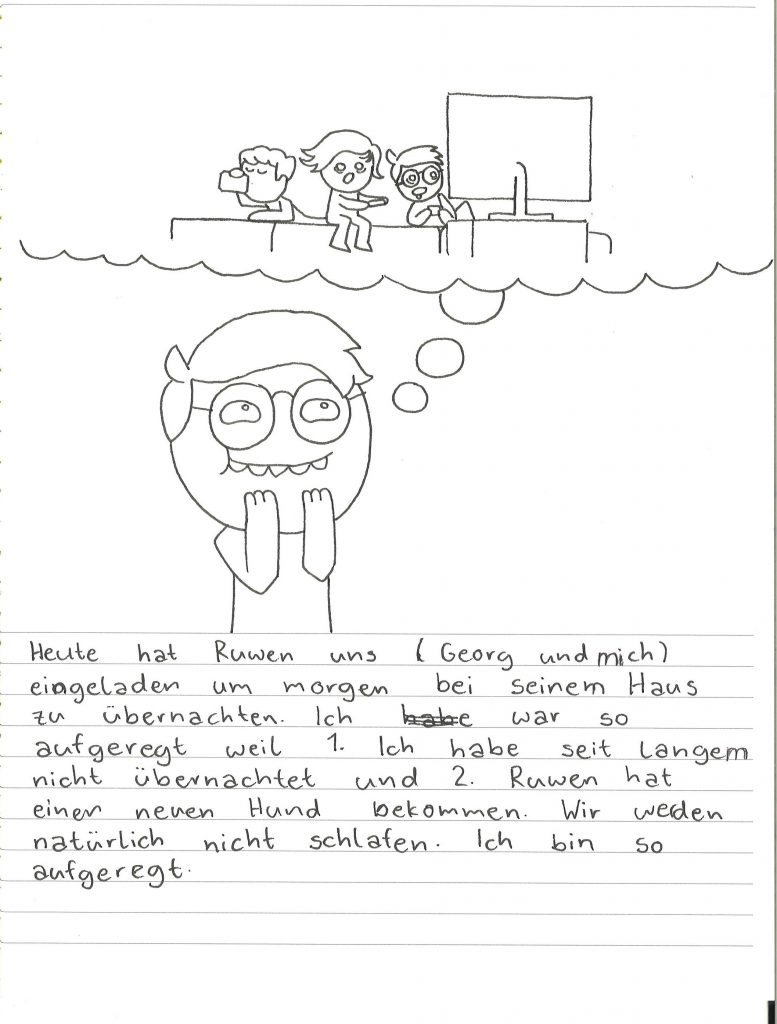 Heute hat Ruwen uns (Georg und mich)
eingeladen um morgen bei seinem Haus
zu übernachten. Ich habe war so
aufgeregt weil 1. Ich habe seit langem
nicht übernachtet und 2. Ruwen hat
einen neuen Hund bekommen. Wir werden
natürlich nicht schlafen. Ich bin so
aufgeregt.